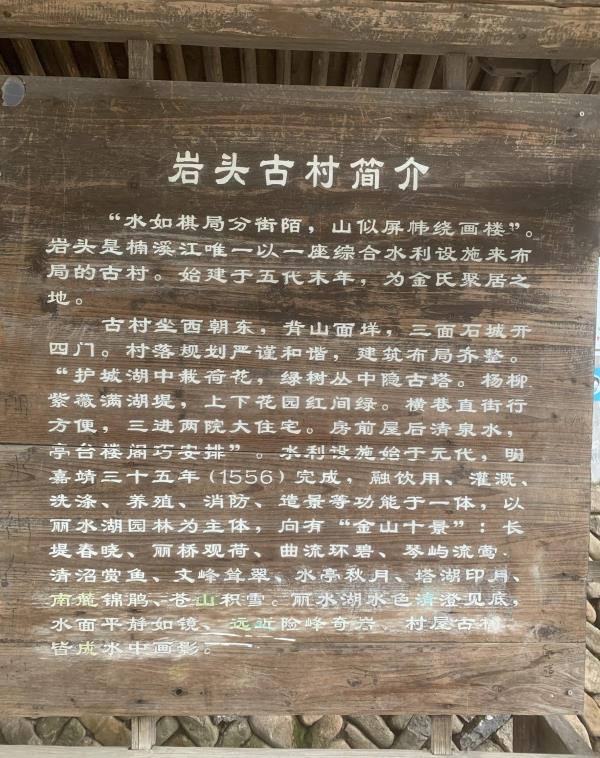 岩头古村简介
“水如棋局分街陌，山似屏帏绕画楼”。
岩头是楠溪江唯一以一座综合水利设施来布
局的古村。始建于五代末年，为金氏聚居之
地。
古村坐西朝东，背山面垟，三面石城开
四门。村落规划严谨和谐，建筑布局齐整。
“护城湖中栽荷花，绿树丛中隐古塔。杨柳
紫薇满湖堤，上下花园红间绿。横巷直街行
方便，三进两院大住宅。房前屋后清泉水，
亭台楼阁巧安排”。水利设施始于元代，明
嘉靖三十五年(1556)完成，融饮用、灌溉、
洗涤、养殖、消防、造景等功能于一体，以
丽水湖园林为主体，向有“金山十景”：长
堤春晓、丽桥观荷、曲流环碧、琴屿流莺、
清沼赏鱼、文峰耸翠、水亭秋月、塔湖印月、
南麓锦鹃、苍山积雪。丽水湖水色清澄见底，
水面平静如镜、远近险峰奇岩、村屋古树
皆成水中画影。